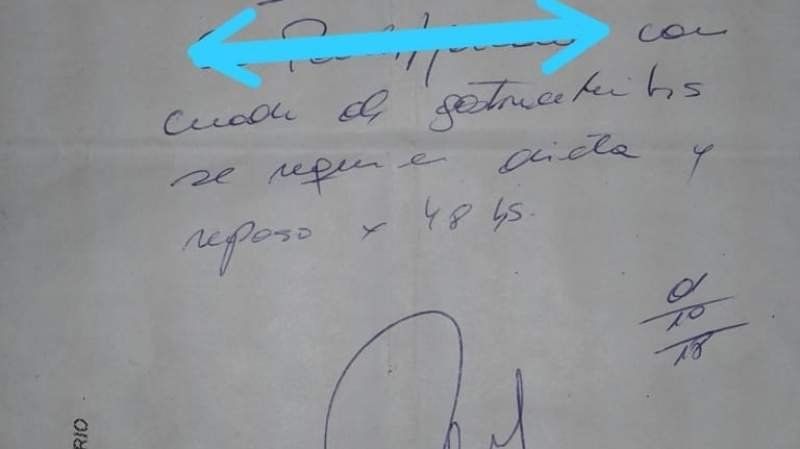 con
cuadro de gastroenteritis
se requiere dieta y
reposo x 48 hs.
10
18
ARIO